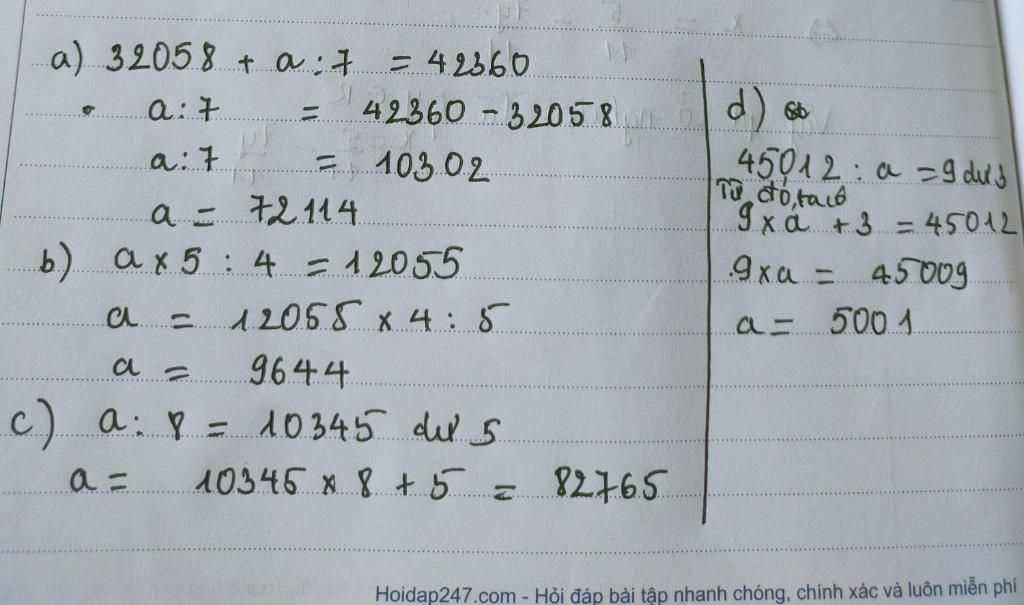 a) 32058 + a : 7 = 42360
a : 7 = 42360 - 32058
a : 7 = 10302
a = 72114
b) a x 5 : 4 = 12055
a = 12055 x 4 : 5
a = 9644
c) a : 8 = 10345 dư 5
a = 10345 x 8 + 5 = 82765
d)
45012 : a = 9 dư 3
Từ đó, ta có
9 x a + 3 = 45012
9 x a = 45009
a = 5001
Hoidap247.com - Hỏi đáp bài tập nhanh chóng, chính xác và luôn miễn phí